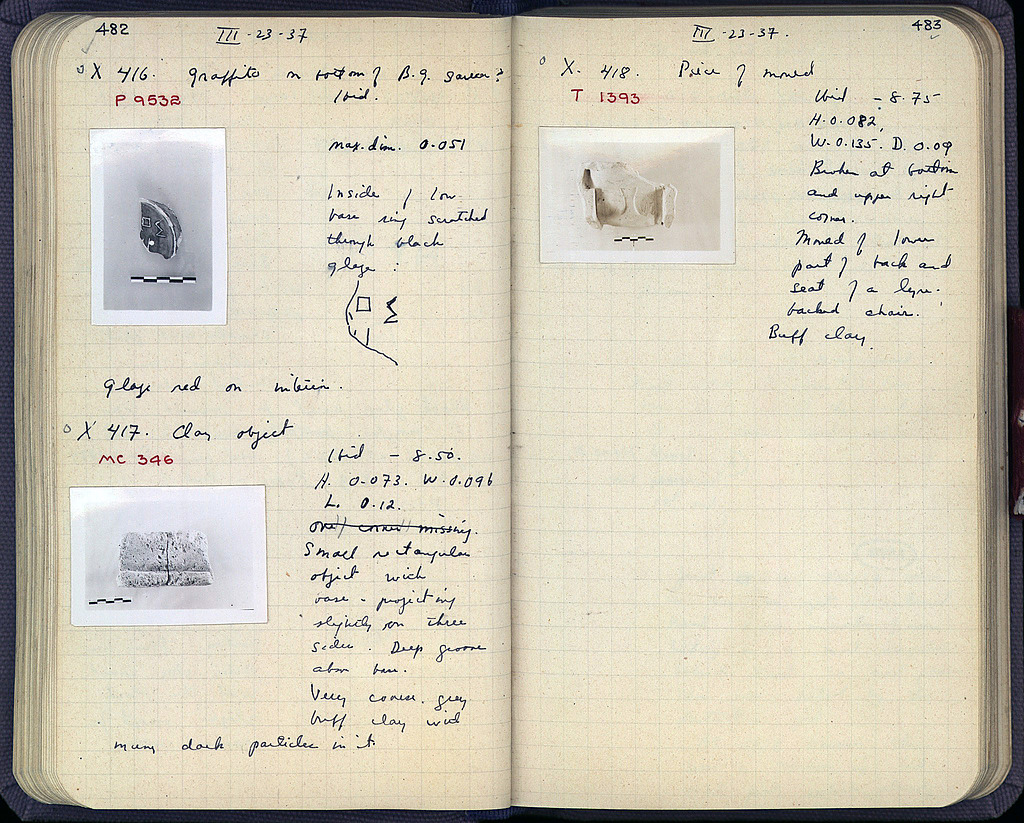 482
III -23-37
X 416. Graffito on bottom of B.G. saucer?
P 9532
Ibid.
max. dim. 0.051
Inside of low
base ring scratched
through black
glaze :
Glaze red on interior.
X 417. Clay object
MC 346
Ibid - 8.50.
H. 0.073. W. 0.096
L. 0.12.
one corner missing.
Small rectangular
object with
base - projecting
slightly on three
sides. Deep groove
above base.
Very coarse. grey
buff clay with
many dark particles in it.
483
III -23-37.
X. 418. Piece of mould
T 1393
Ibid - 8.75
H. 0.082,
W. 0.135. D. 0.09
Broken at bottom
and upper right
corner.
Mould of lower
part of back and
seat of a lyre-
backed chair.
Buff clay.